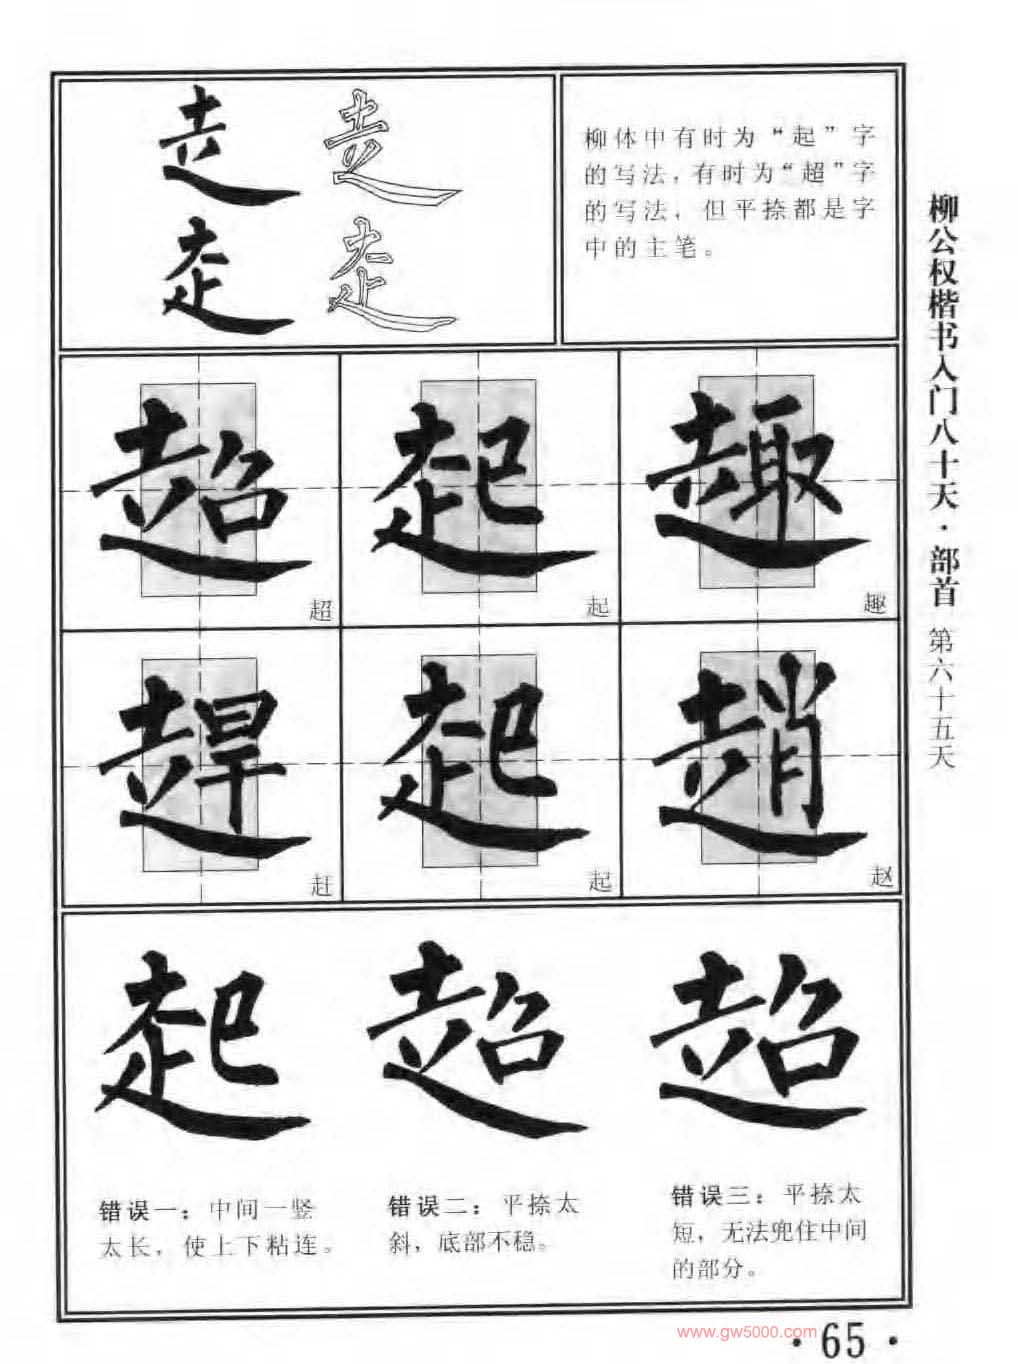 柳体中有时为“起”字
的写法，有时为“超”字
的写法，但平捺都是字
中的主笔。
超 起 趣
超
起
趣
趕 起 趙
赶
起
赵
起 超 超
错误一：中间一竖
太长，使上下粘连。
错误二：平捺太
斜，底部不稳。
错误三：平捺太
短，无法兜住中间
的部分。
柳公权楷书入门八十天·部首 第六十五天
www.gw5000.com
·65·